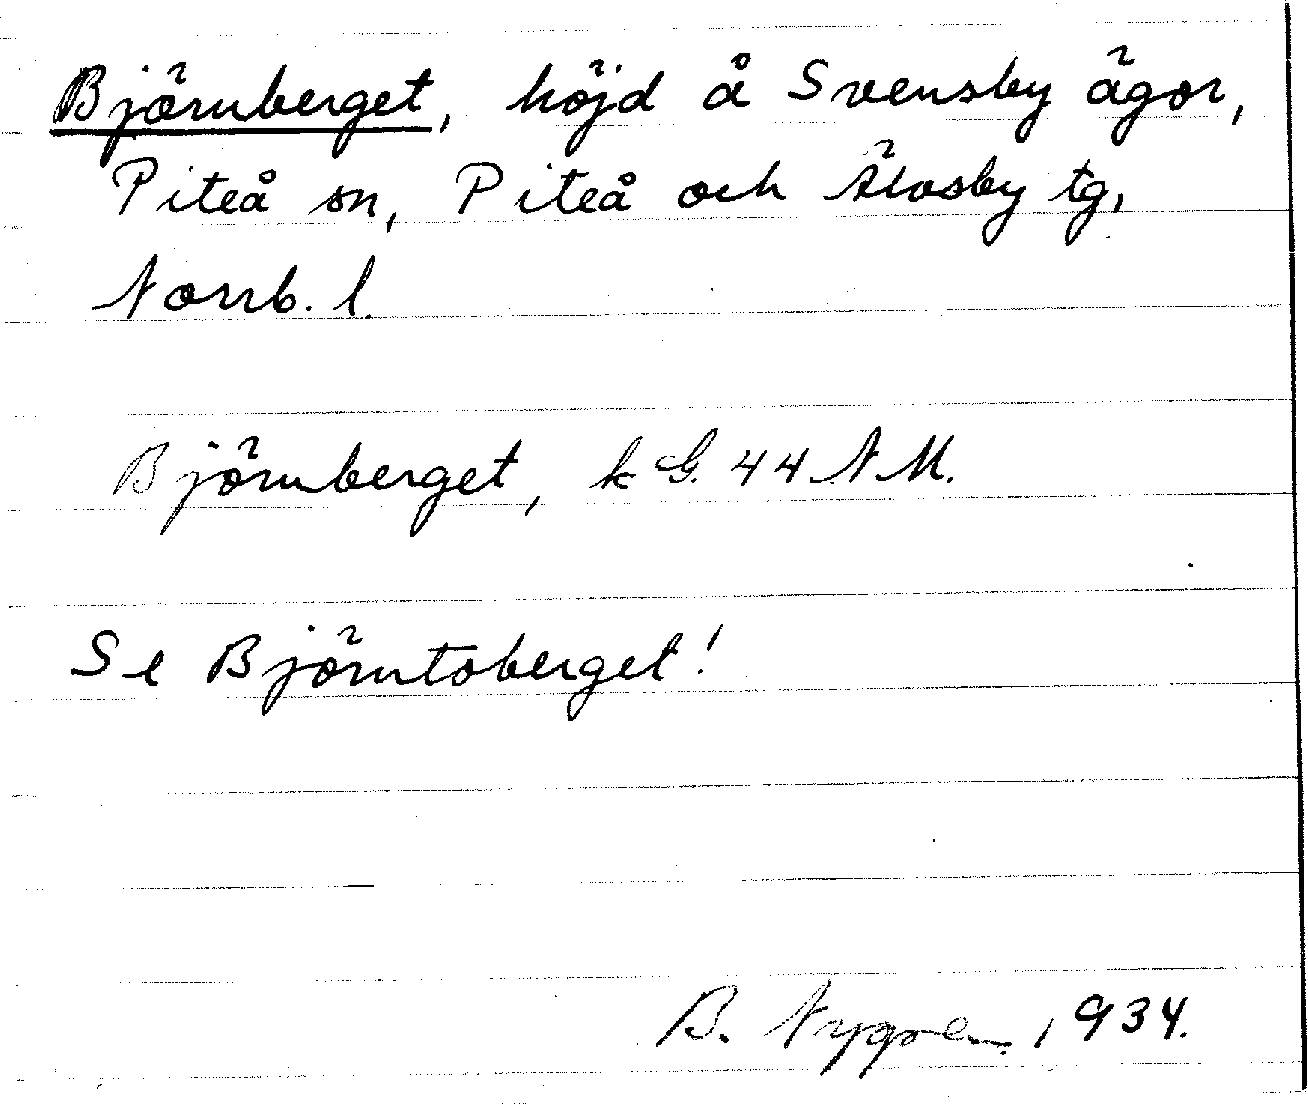 Björnberget, höjd å Svensby ägor,
Piteå sn, Piteå och Älvsby tg,
Norrb. l.
Björnberget, k G. 44 N M.
Se Björntoberget!
B. Nygren 1934.